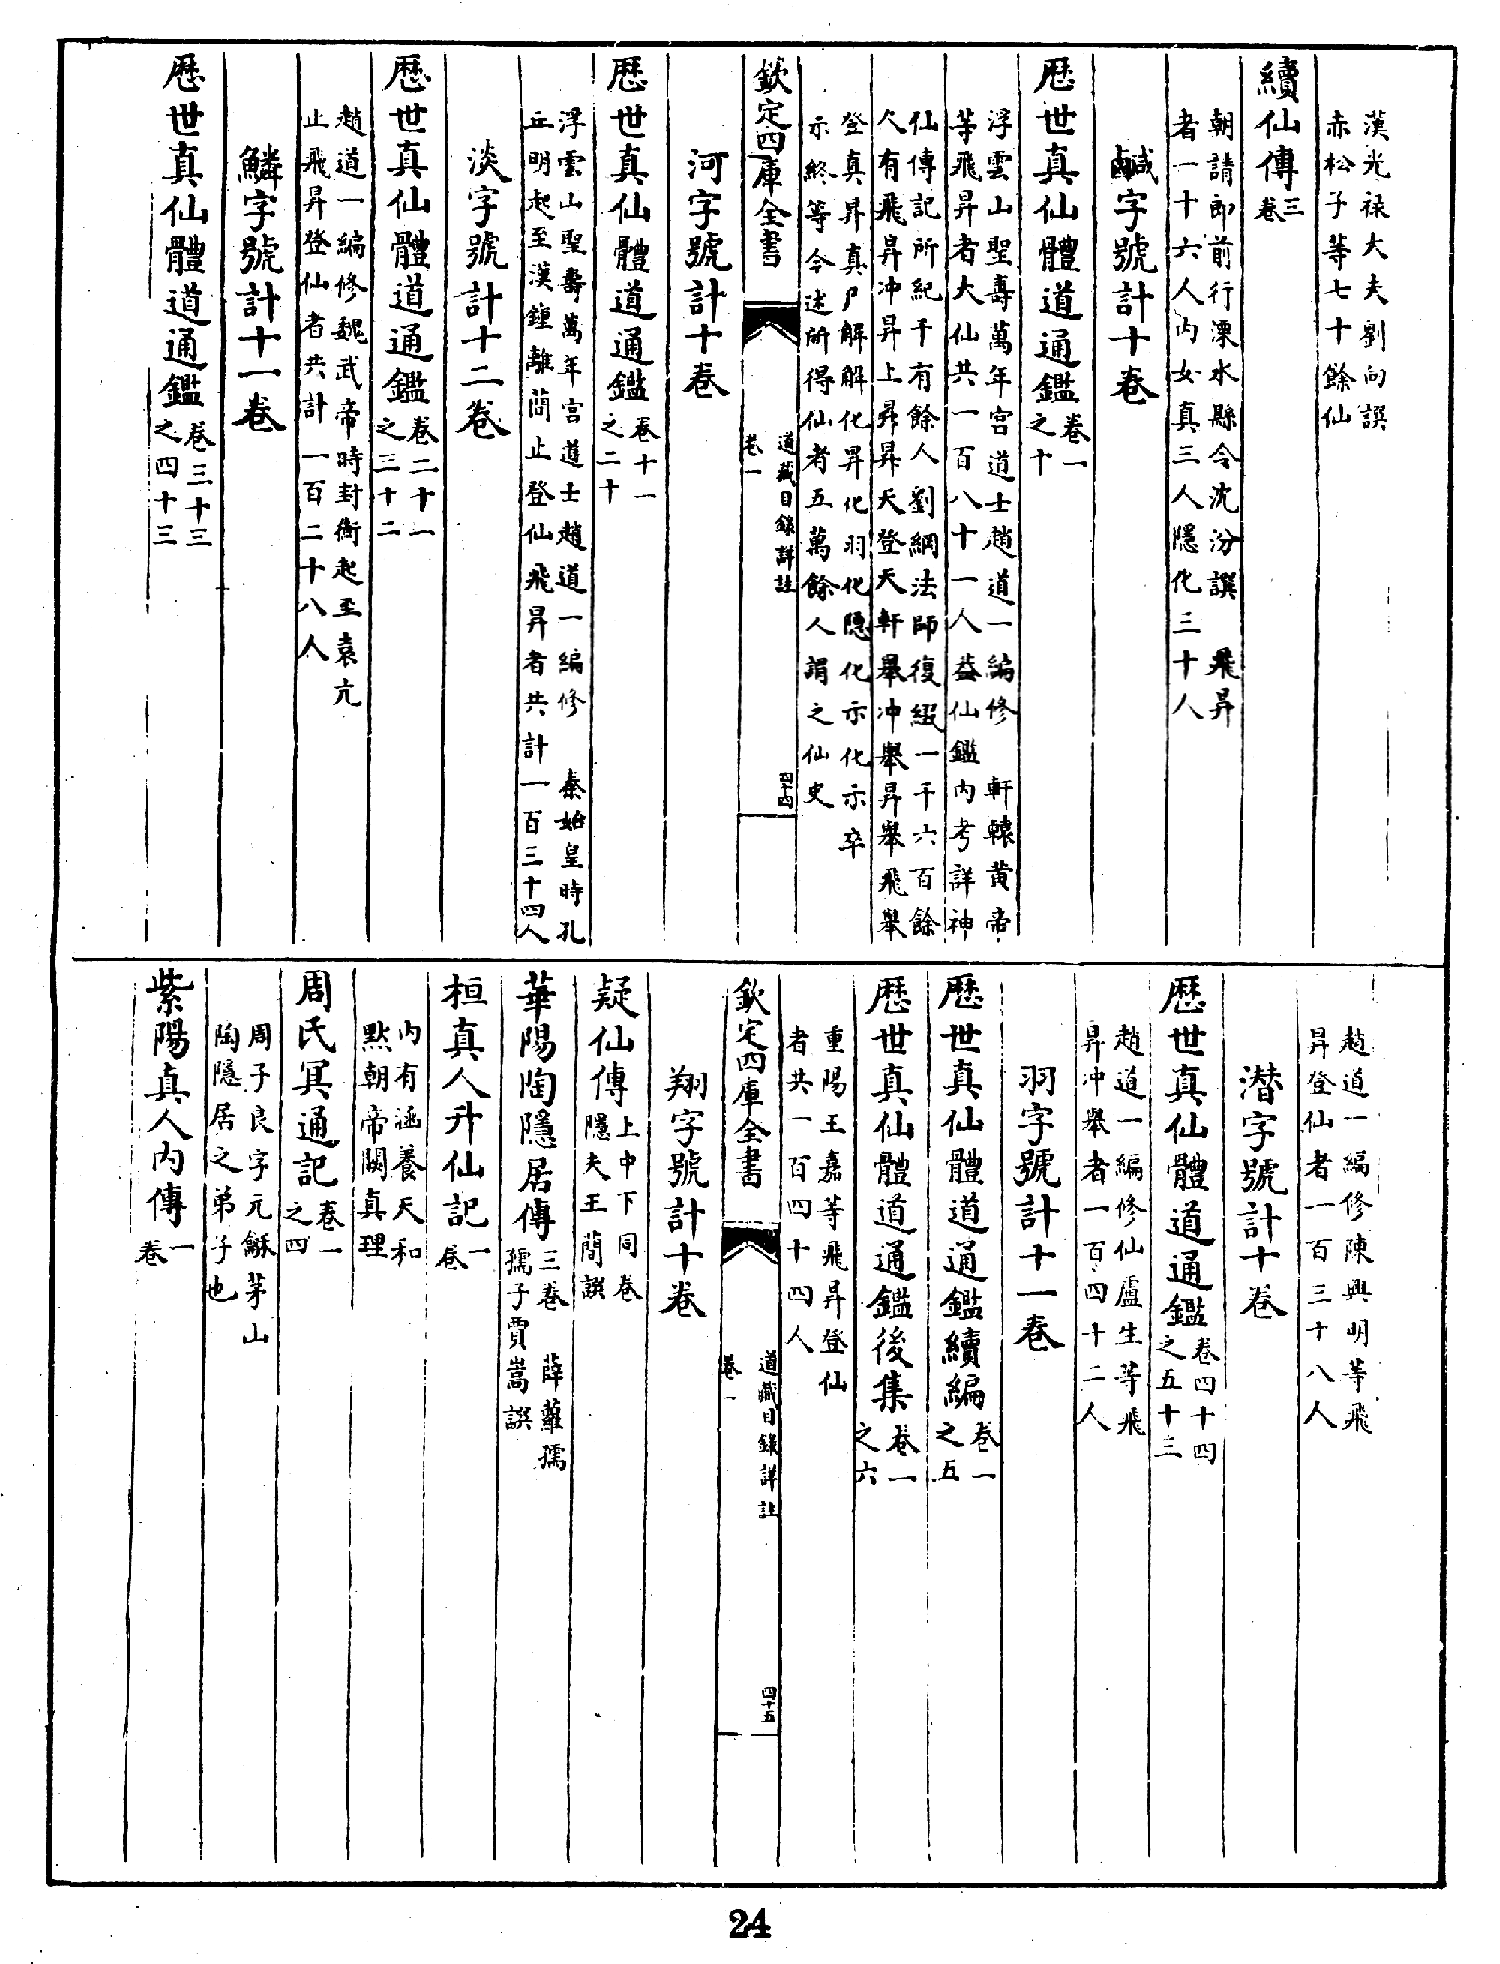 漢光禄大夫劉向譔
赤松子等七十餘仙
續仙傳三卷
朝請郎前行溧水縣令沈汾譔　飛昇
者一十六人內女真三人隱化三十人
鹹字號計十卷
歷世真仙體道通鑑卷一之十
浮雲山聖壽萬年宮道士趙道一編修　軒轅黃帝
等飛昇者大仙共一百八十一人葢仙鑑內考詳神
仙傳記所紀千有餘人劉綱法師復綴一千六百餘
人有飛昇冲昇上昇昇天登天軒舉冲舉昇舉飛舉
登真昇真尸解解化昇化羽化隱化示化示卒
示終等今述所得仙者五萬餘人謂之仙史
欽定四庫全書
道藏目錄詳註
卷一
四十四
河字號計十卷
歷世真仙體道通鑑卷十一之二十
浮雲山聖壽萬年宮道士趙道一編修　秦始皇時孔
丘明起至漢鍾離簡止登仙飛昇者共計一百三十四人
淡字號計十二卷
歷世真仙體道通鑑卷二十一之三十二
趙道一編修魏武帝時封衡起至袁亢
止飛昇登仙者共計一百二十八人
鱗字號計十一卷
歷世真仙體道通鑑卷三十三之四十三
趙道一編修陳興明等飛
昇登仙者一百三十八人
潛字號計十卷
歷世真仙體道通鑑卷四十四之五十三
趙道一編修仙盧生等飛
昇冲舉者一百四十二人
羽字號計十一卷
歷世真仙體道通鑑續編卷一之五
歷世真仙體道通鑑後集卷一之六
重陽王嘉等飛昇登仙
者共一百四十四人
欽定四庫全書
道藏目錄詳註
卷一
四十五
翔字號計十卷
疑仙傳上中下同卷
隱夫王簡譔
華陽陶隱居傳三卷　薛蘿孺
孺子賈嵩譔
桓真人升仙記一卷
內有涵養天和
默朝帝闕真理
周氏冥通記卷一之四
周子良字元龢茅山
陶隱居之弟子也
紫陽真人內傳一卷
24